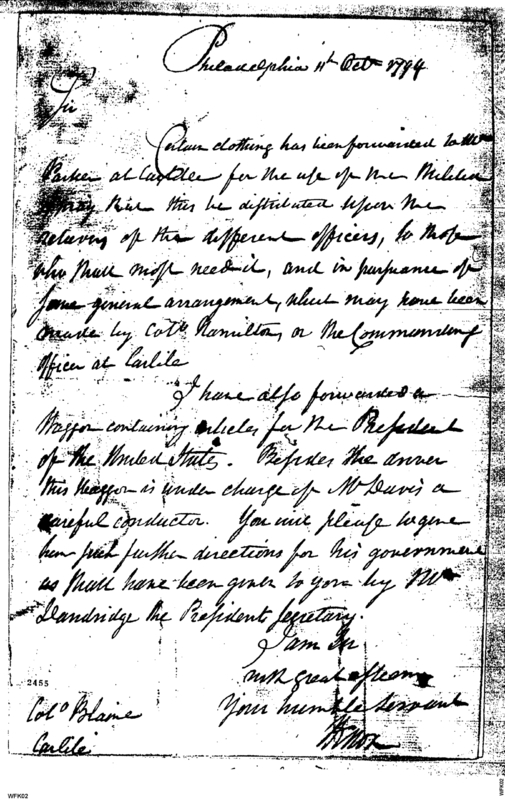 Philadelphia 11th Octr 1794
Sir
Certain clothing has been forwarded to Mr
Parker at Carlisle for the use of the Militia
I pray that this be distributed upon the
returns of the different officers, to those
who shall most need it, and in pursuance of
some general arrangement, which may have been
made by Colo. Hamilton, or the Commanding
officer at Carlile
I have also forwarded a
Waggon containing articles for the President
of the United States. Besides the driver
this waggon is under charge of Mr Davis a
careful conductor. You will please to give
him such further directions for his government
as shall have been given to you by Mr
Dandridge the Presidents secretary.
I am Sir
with great esteem
Your humble servant
HKnox
2455
Colo Blaine
Carlile
WFK02
WFK02